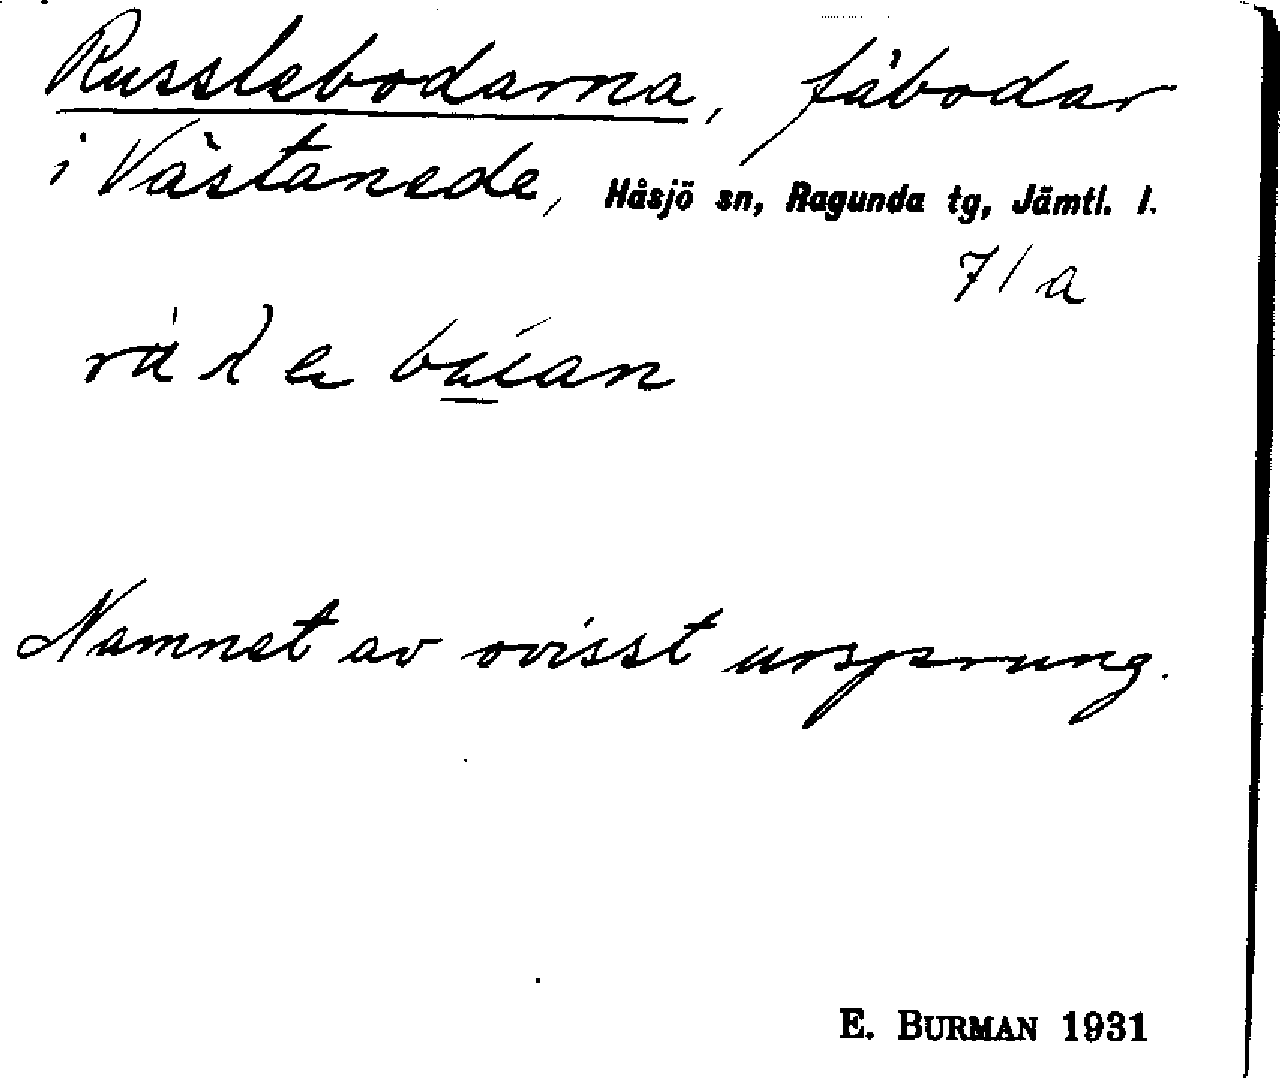 Russlebodarna, fäbodar
i Västanede, Håsjö sn, Ragunda tg, Jämtl. l.
7/a
Namnet av ovisst ursprung.
E. BURMAN 1931